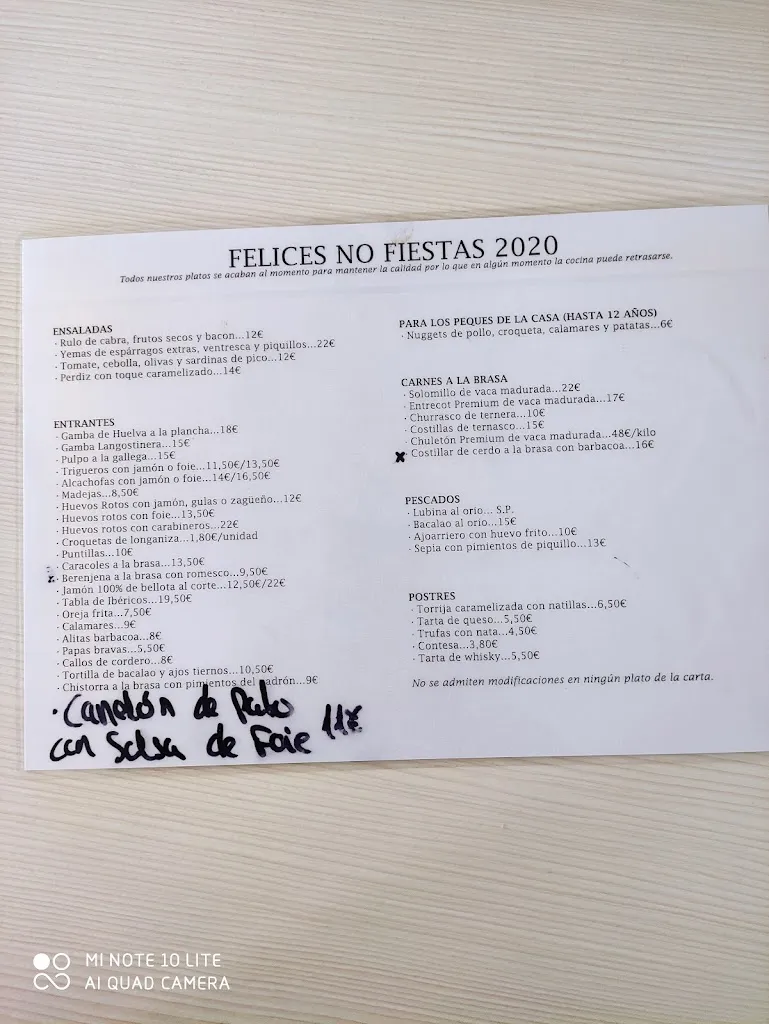 FELICES NO FIESTAS 2020
Todos nuestros platos se acaban al momento para mantener la calidad por lo que en algún momento la cocina puede retrasarse.
ENSALADAS
· Rulo de cabra, frutos secos y bacon...12€
· Yemas de espárragos extras, ventresca y piquillos...22€
· Tomate, cebolla, olivas y sardinas de pico...12€
· Perdiz con toque caramelizado...14€
ENTRANTES
· Gamba de Huelva a la plancha...18€
· Gamba Langostinera...15€
· Pulpo a la gallega...15€
· Trigueros con jamón o foie...11,50€/13,50€
· Alcachofas con jamón o foie...14€/16,50€
· Madejas...8,50€
· Huevos Rotos con jamón, gulas o zagüeño...12€
· Huevos rotos con foie...13,50€
· Huevos rotos con carabineros...22€
· Croquetas de longaniza...1,80€/unidad
· Puntillas...10€
· Caracoles a la brasa...13,50€
x· Berenjena a la brasa con romesco...9,50€
· Jamón 100% de bellota al corte...12,50€/22€
· Tabla de Ibéricos...19,50€
· Oreja frita...7,50€
· Calamares...9€
· Alitas barbacoa...8€
· Papas bravas...5,50€
· Callos de cordero...8€
· Tortilla de bacalao y ajos tiernos...10,50€
· Chistorra a la brasa con pimientos del padrón...9€
· Canelón de Pato
con Salsa de Foie 11€
PARA LOS PEQUES DE LA CASA (HASTA 12 AÑOS)
· Nuggets de pollo, croqueta, calamares y patatas...6€
CARNES A LA BRASA
· Solomillo de vaca madurada...22€
· Entrecot Premium de vaca madurada...17€
· Churrasco de ternera...10€
· Costillas de ternasco...15€
· Chuletón Premium de vaca madurada...48€/kilo
x· Costillar de cerdo a la brasa con barbacoa...16€
PESCADOS
· Lubina al orio... S.P.
· Bacalao al orio...15€
· Ajoarriero con huevo frito...10€
· Sepia con pimientos de piquillo...13€
POSTRES
· Torrija caramelizada con natillas...6,50€
· Tarta de queso...5,50€
· Trufas con nata...4,50€
· Contesa...3,80€
· Tarta de whisky...5,50€
No se admiten modificaciones en ningún plato de la carta.
MI NOTE 10 LITE
AI QUAD CAMERA